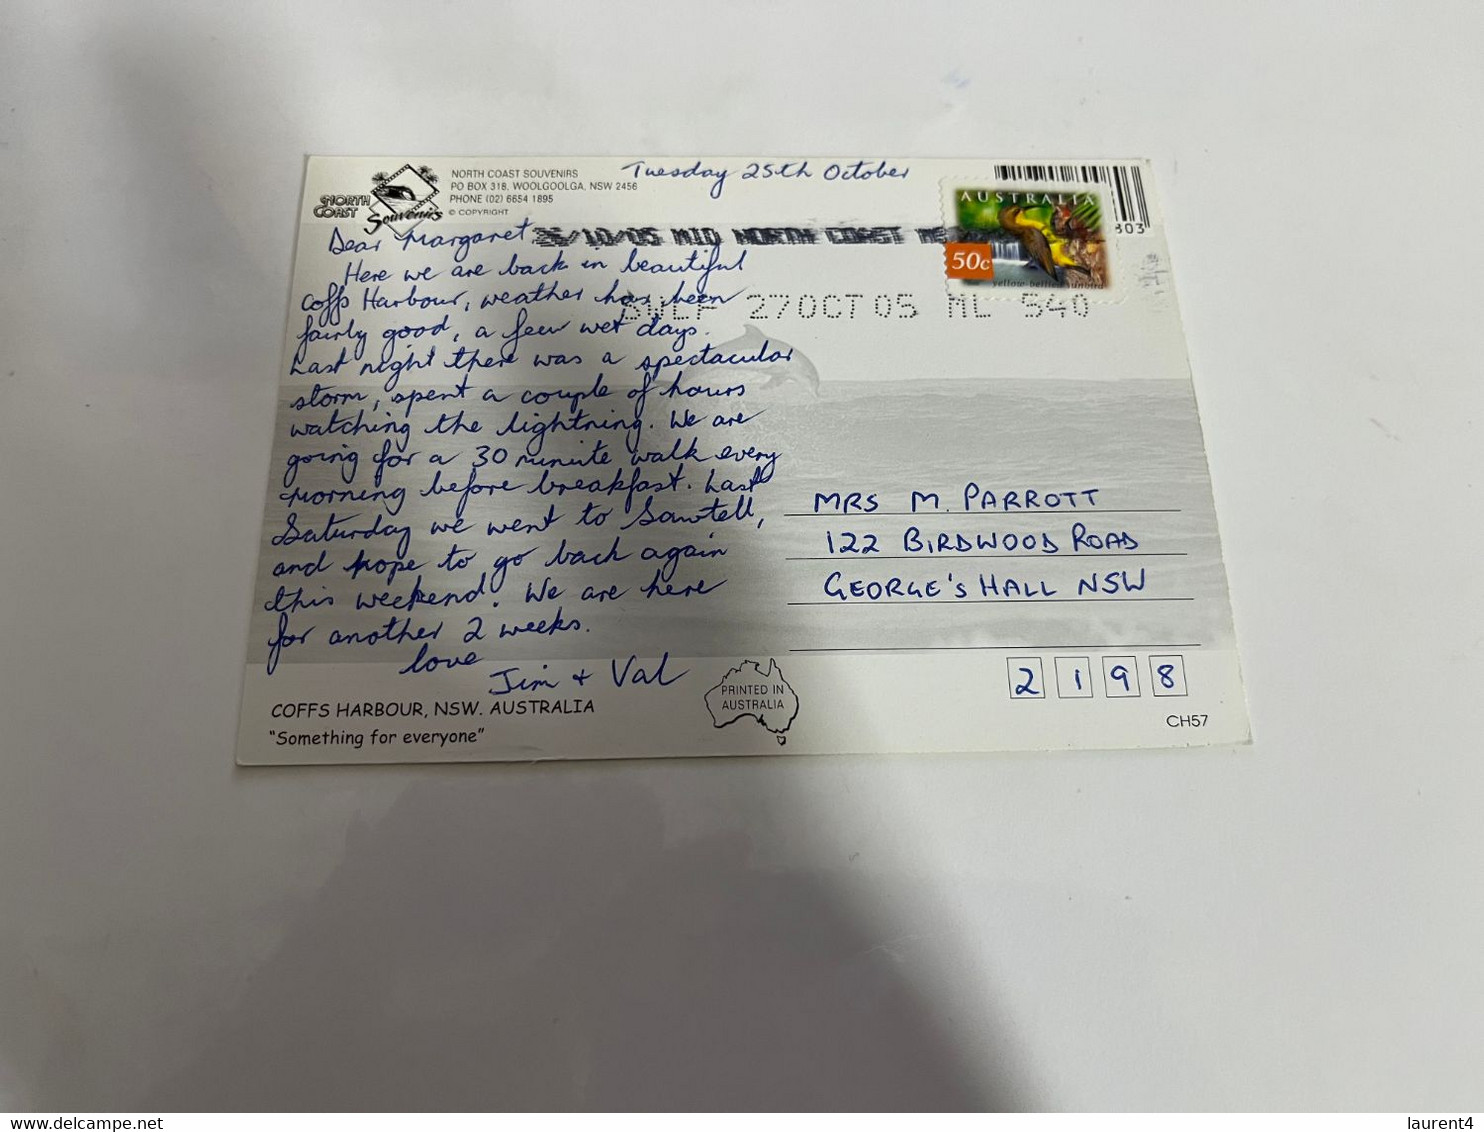 NORTH COAST Souvenirs
NORTH COAST SOUVENIRS
PO BOX 318, WOOLGOOLGA, NSW 2456
PHONE (02) 6654 1895
© COPYRIGHT
Tuesday 25th October
Dear Margaret,
Here we are back in beautiful
Coffs Harbour, weather has been
fairly good, a few wet days.
Last night there was a spectacular
storm, spent a couple of hours
watching the lightning. We are
going for a 30 minute walk every
morning before breakfast. Last
Saturday we went to Sawtell,
and hope to go back again
this weekend. We are here
for another 2 weeks.
love
Jim + Val
COFFS HARBOUR, NSW. AUSTRALIA
"Something for everyone"
PRINTED IN
AUSTRALIA
26/10/05 MID NORTH COAST
SWLF 27OCT05 ML 540
AUSTRALIA
50c
yellow-bellied sunbird
803
MRS M. PARROTT
122 BIRDWOOD ROAD
GEORGE'S HALL NSW
2198
CH57
laurent4